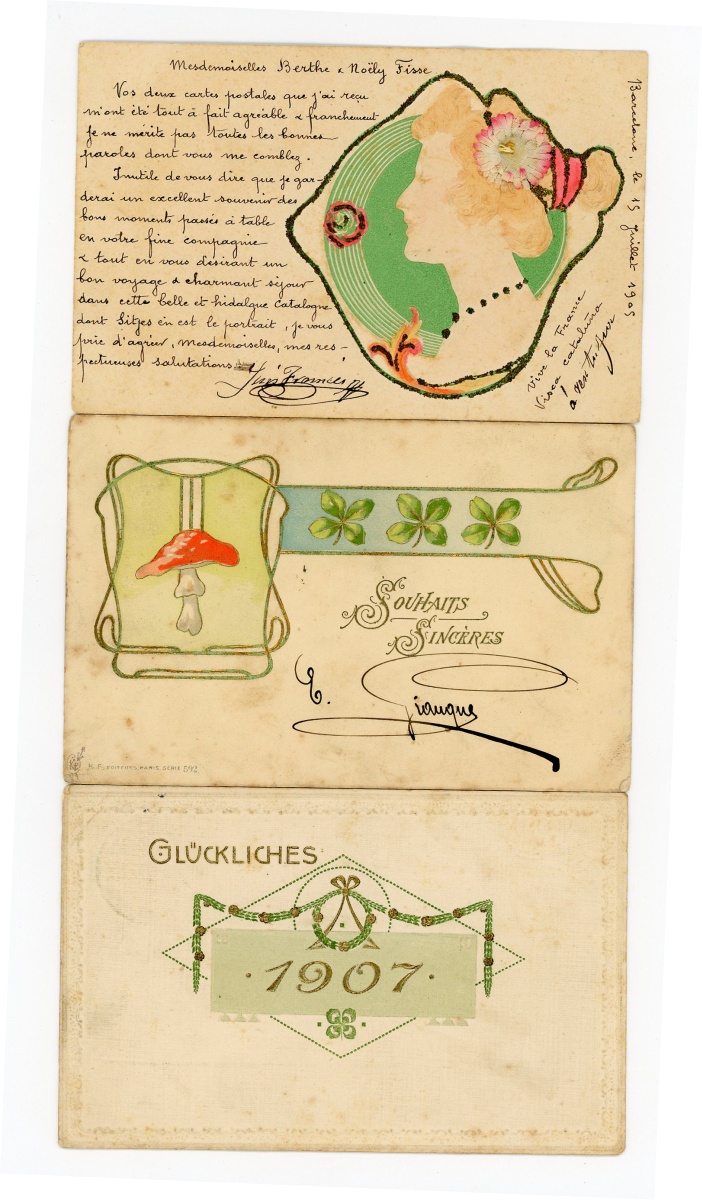 Mesdemoiselles Berthe & Noëly Fisse
Vos deux cartes postales que j'ai reçu
m'ont été tout à fait agréable & franchement
je ne mérite pas toutes les bonnes
paroles dont vous me comblez.
Inutile de vous dire que je gar-
derai un excellent souvenir des
bons moments passés à table
en votre fine compagnie
& tout en vous désirant un
bon voyage & charmant séjour
dans cette belle et hidalgue Catalogne
dont Sitjes en est le portrait, je vous
prie d'agréer, Mesdemoiselles, mes res-
pectueuses salutations
Francés
Barcelone, le 15 Juillet 1905
Vive la France
Visca cataluña
SOUHAITS
SINCÈRES
E. Giauque
K. F. EDITEURS, PARIS, SÉRIE 692
GLÜCKLICHES
·1907·